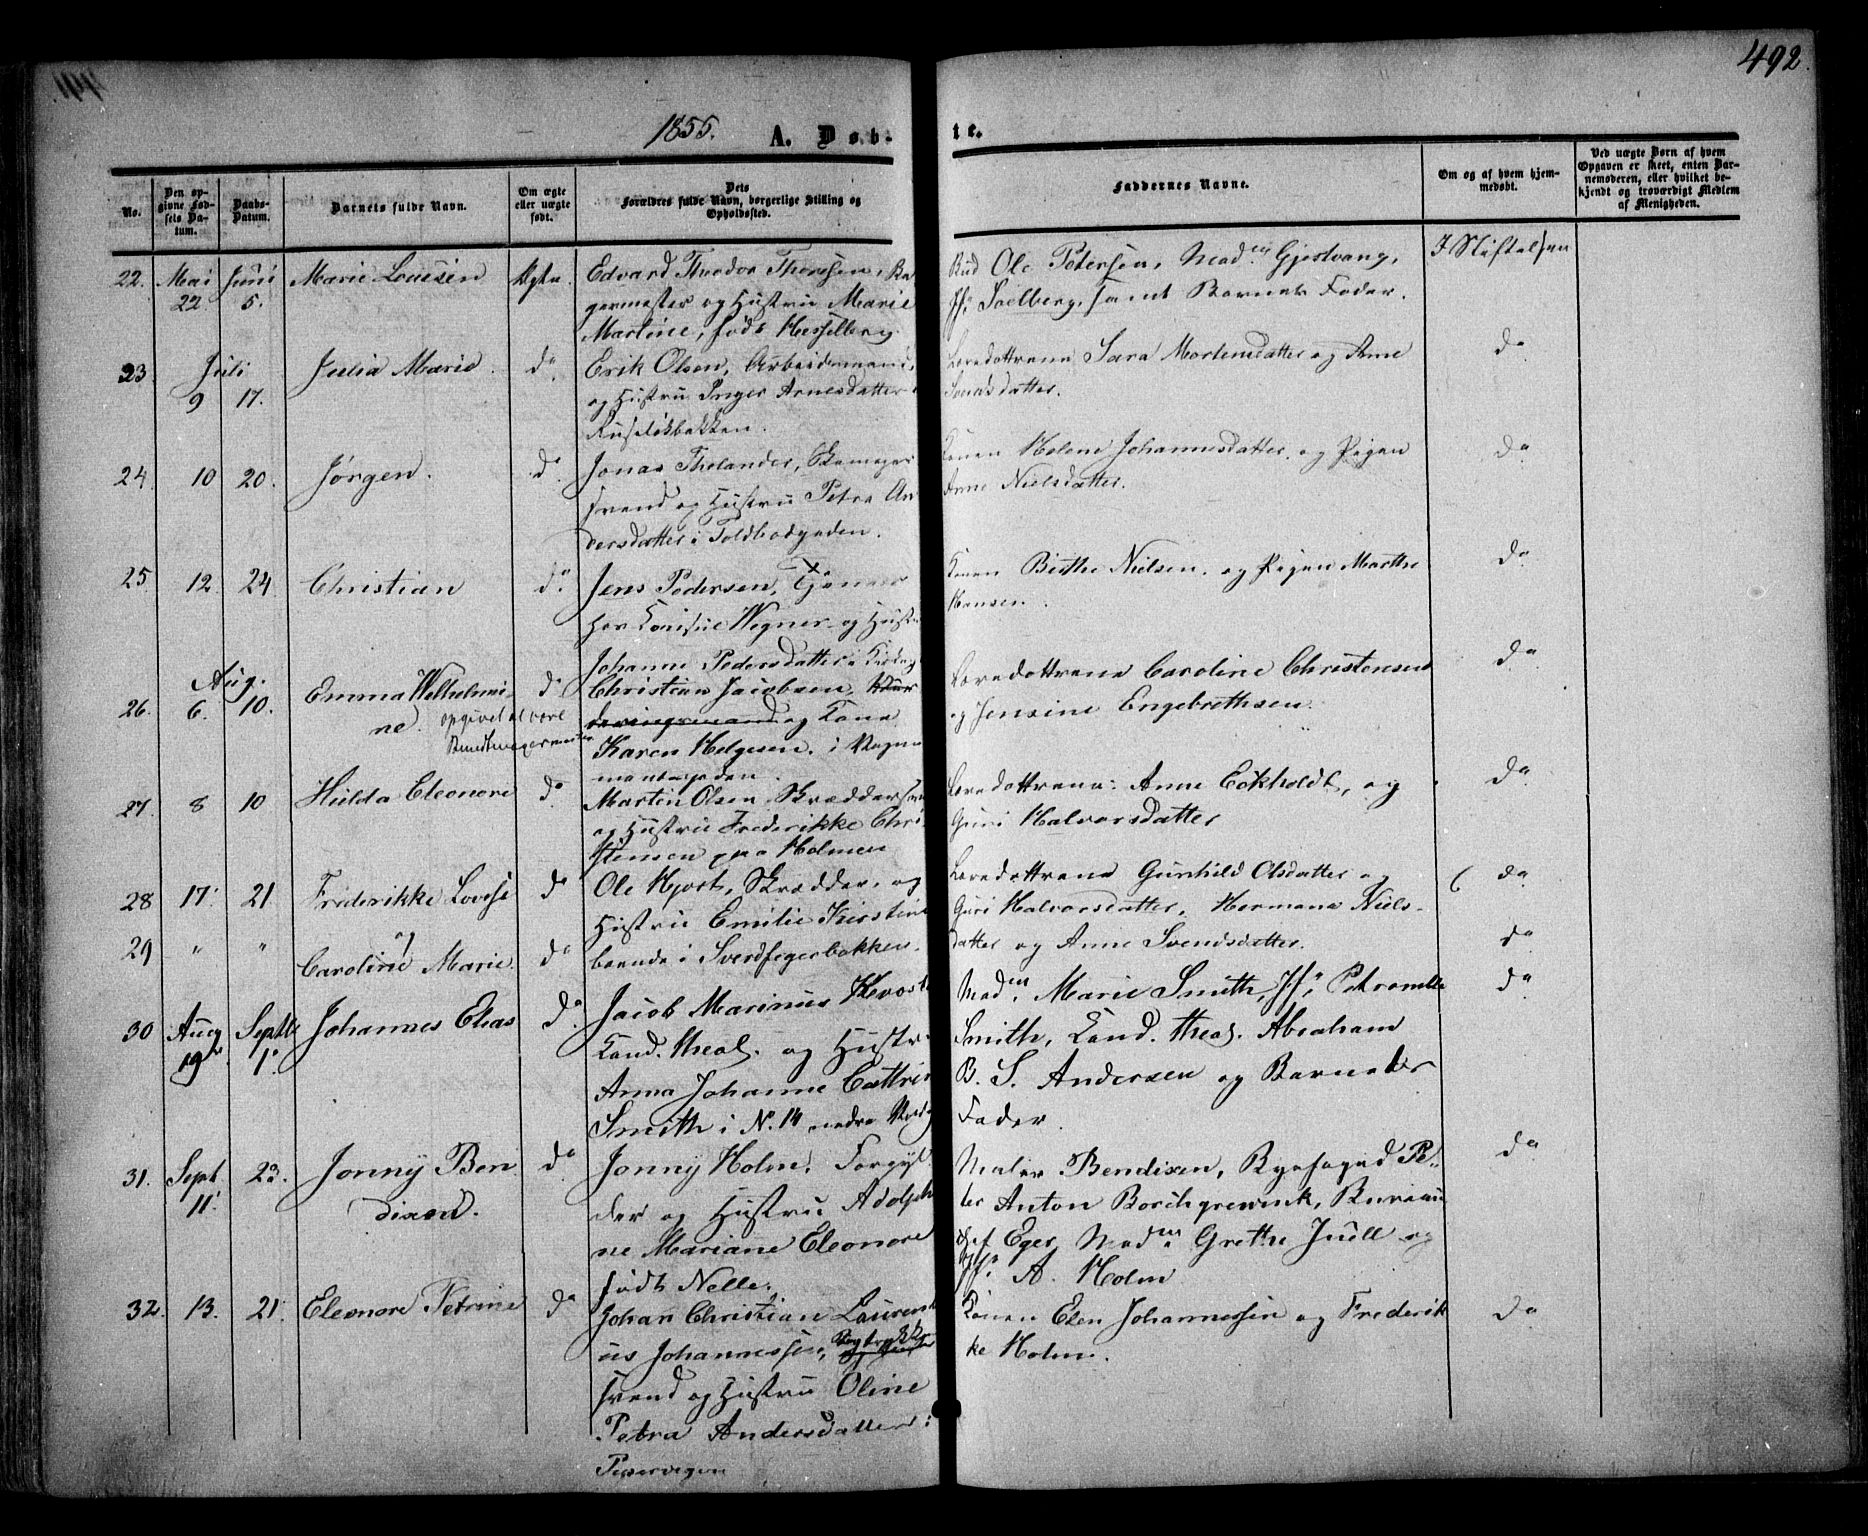 492.
1855. A. Døb-
te.
No.
Den op-
givne Fød-
sels Da-
tum.
Daabs-
Datum.
Barnets fulde Navn.
Om ægte
eller uægte
født.
Dets
Forældres fulde Navn, borgerlige Stilling og
Opholdssted.
Faddernes Navne.
Om og af hvem hjem-
medøbt.
Ved uægte Børn af hvem
Opgaven er skeet, enten Bar-
nemoderen, eller hvilket be-
kjendt og troværdigt Medlem
af Menigheden.
22. Mai 22. Juni 5. Marie Lousen Ægte.
Edvard Theodor Thoresen, Ba
germester og Hustru Marie
Martine, født Hesselberg.
Bud Ole Petersen, Mad.m Gjestvang,
Jfr. Soelberg, samt Barnets Fader.
I Stiftelsen
23. Juli 9 17. Julia Marie. do.
Erik Olsen, Arbeidsmand,
og Hustru Inger Arnesdatter i
Ruseløkbakken.
Læredøttrene Sara Mortensdatter og Anne
Svensdatter.
do
24. 10 20. Jørgen. do.
Jonas Thelander, Skomager
svend og Hustru Petra An
dersdatter i Toldbodgaden.
Konen Helene Johannesdatter og Pigen
Anne Nielsdatter.
do
25 12. 24. Christian do.
Jens Pedersen, Tjener
hos Konsul Wegner og Hustru
Johanne Pedersdatter i
Konen Birthe Nielsen og Pigen Marthe
Hansen.
do
26. Aug. 6. 10. Emma Wilhelmi-
ne. opgivet at være
Buntmagermester
do
Christian Jacobsen,
og Kone
Karen Helgesen. i Vogn
mandsgaden.
Læredøttrene Caroline Christensen
og Jensine Engebrethsen.
do
27. 8 10 Hulda Eleonore do.
Martin Olsen Skræddersvend
og Hustru Frederikke Chri
stensen paa Holmen
Læredøttrene: Anne Eckholdt, og
Guri Halvorsdatter
do
28 17. 21 Frederikke Lovise do
Ole Hjort, Skrædder, og
Hustru Emilie Kirstine
Læredøttrene Gunhild Olsdatter og
Guri Halvorsdatter, Hermana Niels-
do
29 " " og
Caroline Marie. do
boende i Sverdfegerbakken.
datter og Anne Svendsdatter.
do
30 Aug 19de. Septb 1. Johannes Elias do.
Jacob Marinus
Kand. theol. og Hustru
Anna Johanne Cathrine
Smith i No. 14 nedre
Mad.m Marie Smith, Jfr. Petronelle
Smith, Kand. theol. Abraham
B. S. Andersen og Barnets
Fader.
do
31. Sept. 11. 23. Jonny Ben
dixen. do
Jonny Holm, Forgyl
der og Hustru Adolphi
ne Mariane Eleonore
født Nelle.
Maler Bendixen, Byefoged Pe-
ter Anton Borchgrewink, Bureau
chef Eger, Madm Grethe Juell og
Jfr. A. Holm
do
32. 13. 21. Eleonore Petrine do
Johan Christian Laurenti
us Johannessen, Bogtrykker
svend og Hustru Oline
Petra Andersdatter i
Pilestrædet
Konen Elen Johannessen og Frederik
ke Holm.
do